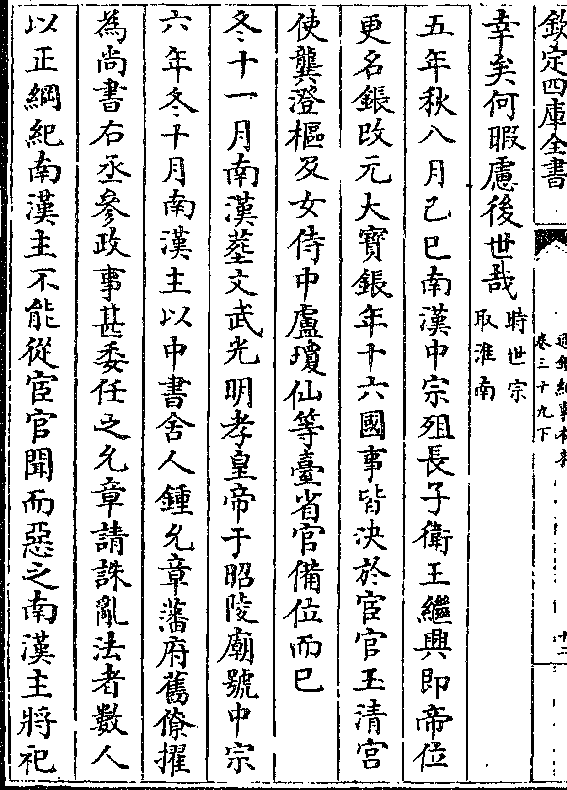 欽定四庫全書
卷三十九下
幸矣何暇慮後世哉時世宗取淮南
五年秋八月己巳南漢中宗殂長子衛王繼興即帝位
更名鋹改元大寶鋹年十六國事皆決於宦官玉清宫
使龔澄樞及女侍中盧瓊仙等臺省官備位而已
冬十一月南漢葬文武光明孝皇帝于昭陵廟號中宗
六年冬十月南漢主以中書舍人鍾允章藩府舊僚擢
為尚書右丞參政事甚委任之允章請誅亂法者數人
以正綱紀南漢主不能從宦官聞而惡之南漢主將祀